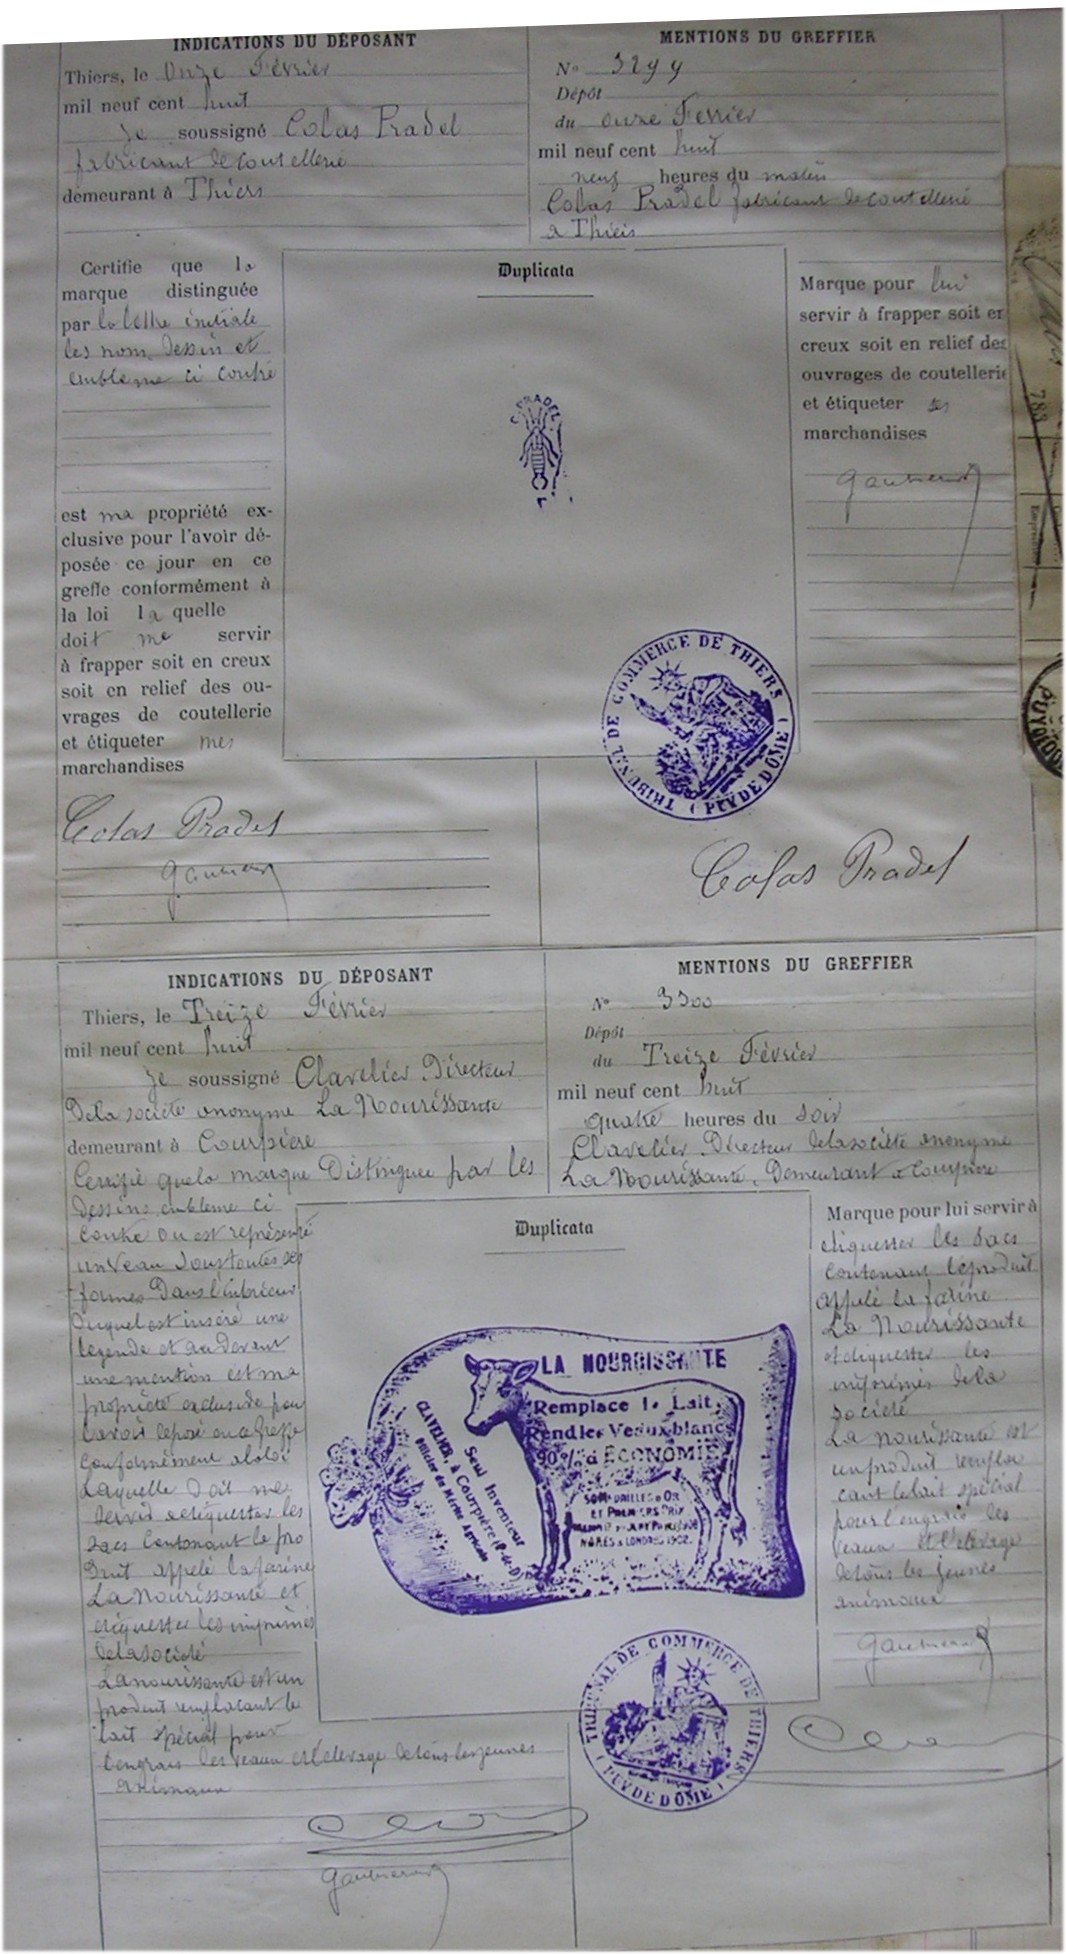 INDICATIONS DU DÉPOSANT
Thiers, le Onze Février
mil neuf cent huit
Je soussigné Colas Pradel
fabricant de coutellerie
demeurant à Thiers
MENTIONS DU GREFFIER
N° 3299
Dépôt
du onze Fevrier
mil neuf cent huit
neuf heures du matin
Colas Pradel fabricant de coutellerie
a Thiers
Certifie que la
marque distinguée
par la lettre initiale
les nom, dessin et
embleme ci contre
est ma propriété ex-
clusive pour l'avoir dé-
posée ce jour en ce
greffe conformément à
la loi laquelle
doit me servir
à frapper soit en creux
soit en relief des ou-
vrages de coutellerie
et étiqueter mes
marchandises
Colas Pradel
Duplicata
C. PRADEL
TRIBUNAL DE COMMERCE DE THIERS
( PUY DE DÔME )
Marque pour lui
servir à frapper soit en
creux soit en relief des
ouvrages de coutellerie
et étiqueter ses
marchandises
Colas Pradel
783
PUY D
INDICATIONS DU DÉPOSANT
Thiers, le Treize Février
mil neuf cent huit
Je soussigné Clavelier Directeur
De la société anonyme La Nourissante
demeurant à Courpière
Certifie que la marque Distinguee par les
dessins embleme ci
contre ou est représenté
un Veau sous toutes ses
formes Dans l'intérieur
Duquel est inséré une
legende et au devant
une mention est ma
propriété exclusive pour
l'avoir déposé en ce Greffe
conformément a la loi
Laquelle doit me
servir a etiqueter les
sacs contenant le pro
duit appelé la farine
La Nourissante et
etiqueter les imprimés
de la société
La nourissante est un
produit remplacant le
lait spécial pour
l'engrais les veaux et l'elevage de tous les jeunes
animaux
MENTIONS DU GREFFIER
N° 3300
Dépôt
du Treize Février
mil neuf cent huit
quatre heures du soir
Clavelier Directeur de la société anonyme
La Nourissante. Demeurant a Courpière
Duplicata
LA NOURRISSANTE
Remplace le Lait
Rend les Veaux blancs
90% d'ÉCONOMIE
Seul Inventeur
CLAVELIER, à Courpière (P-de-D)
Officier du Mérite Agricole
ET PREMIERS PRIX
LONDRES 1902.
TRIBUNAL DE COMMERCE DE THIERS
( PUY DE DÔME )
Marque pour lui servir à
etiquetter les sacs
contenant le produit
appelé la farine
La Nourissante
et etiquetter les
imprimés de la
société
La nourissante est
un produit rempla
cant le lait spécial
pour l'engrais les
veaux et l'elevage
de tous les jeunes
animaux